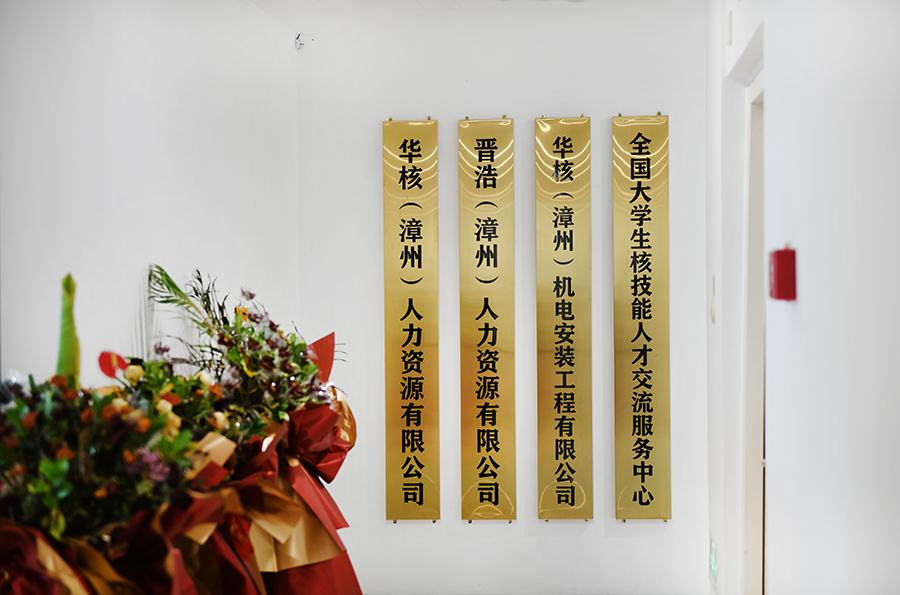 华核（漳州）人力资源有限公司
晋浩（漳州）人力资源有限公司
华核（漳州）机电安装工程有限公司
全国大学生核技能人才交流服务中心